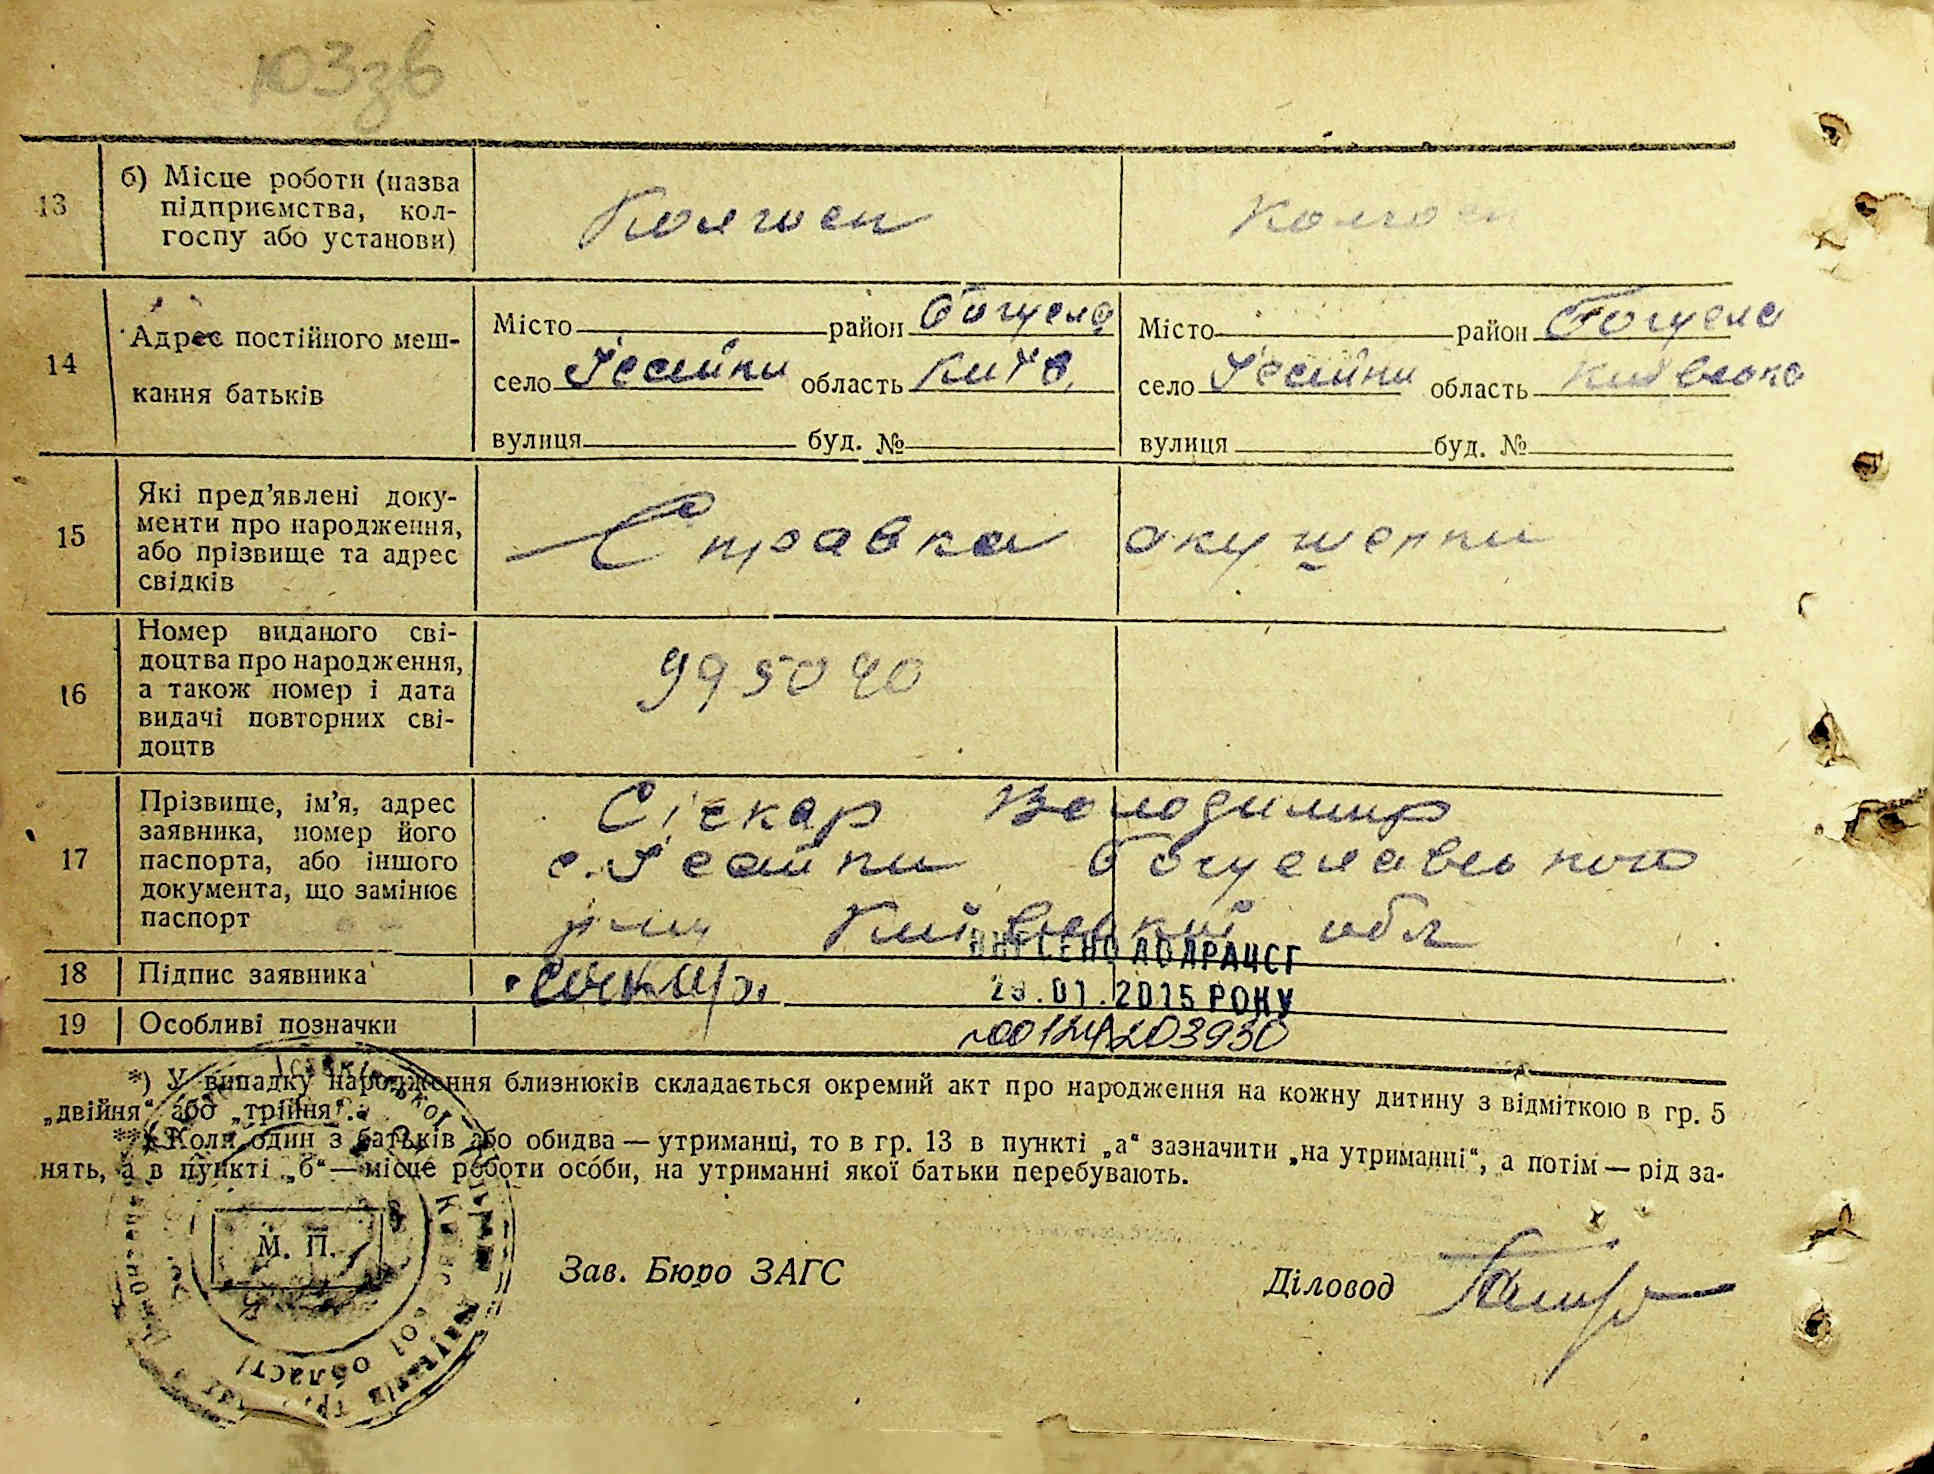 103зв
13
б) Місце роботи (назва
підприємства, кол-
госпу або установи)
Колгосп
Колгосп
14
Адрес постійного меш-
кання батьків
Місто район Богусла
село Ісайки область Київ.
вулиця буд. №
Місто район Богусла
село Ісайки область Київсько
вулиця буд. №
15
Які пред'явлені доку-
менти про народження,
або прізвище та адрес
свідків
Справка акушерки
16
Номер виданого сві-
доцтва про народження,
а також номер і дата
видачі повторних сві-
доцтв
995040
17
Прізвище, ім'я, адрес
заявника, номер його
паспорта, або іншого
документа, що замінює
паспорт
Сіскар Володимир
с. Ісайки Богуславського
р-ну Київської обл
18
Підпис заявника
ВНЕСЕНО ДО ДРАЦСГ
.01.2015 РОКУ
19
Особливі позначки
00124203930
*) У випадку народження близнюків складається окремий акт про народження на кожну дитину з відміткою в гр. 5
„двійня“ або „трійня“.
**) Коли один з батьків або обидва — утриманці, то в гр. 13 в пункті „а“ зазначити „на утриманні“, а потім — рід за-
нять, а в пункті „б“ — місце роботи особи, на утриманні якої батьки перебувають.
М. П.
області
Зав. Бюро ЗАГС
Діловод